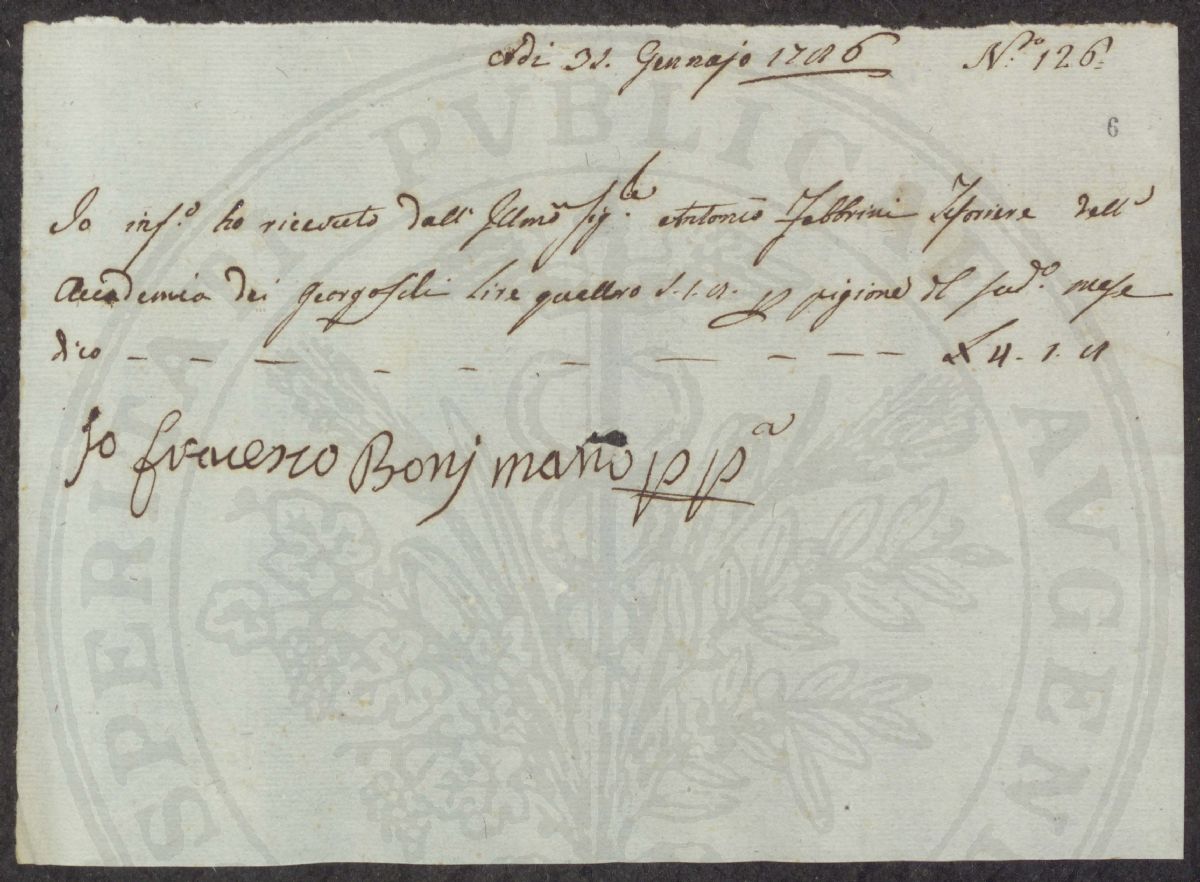 Adi 31. Gennajo 1786 N.° 126.
6
Io inf.° ho riceuto dall' Illmo Sig.re Antonio Fabbrini Tesoriere dell'
Accademia dei Georgofili lire quattro s.1.8. p pigione del sud.° mese
dico — — — — — — — — — — £ 4. 1. 8
Io Francesco Bonj mano pp.a
PROSPERITATI PVBLICAE AVGENDAE